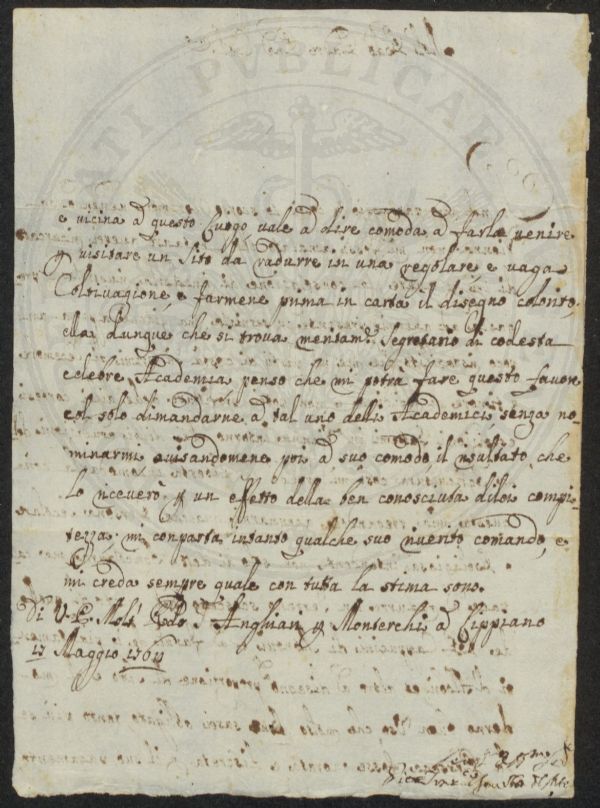 e vicina à questo Luogo vale à dire comoda à farla venire
p visitare un Sito da radurre in una regolare e vaga
Coltivagione, e farmene prima in carta il disegno colorito,
ella dunque che si trova meritam.e Segretario di codesta
celebre Academia penso che mi potrà fare questo favore
col solo dimandarne à tal uno delli Academici senza no-
minarmi, avisandomene poi à suo comodo il risultato, che
lo riceverò p un effetto della ben conosciuta di lei compi-
tezza, mi comparta intanto qualche suo riverito comando, e
mi creda sempre quale con tutta la stima sono.
Di V. P. Molt. Rdo Anghiari p Monterchi à Lippiano
17 Maggio 1764